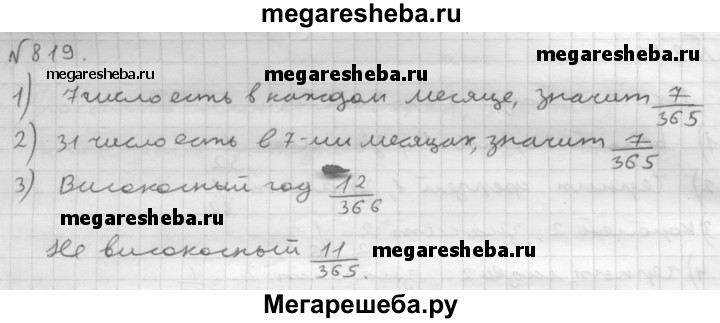 megaresheba.ru
№819.
megaresheba.ru megaresheba.ru
1) 7 число есть в каждом месяце, значит 7/365
2) 31 число есть в 7-ми месяцах, значит 7/365
3) Високосный год 12/366
megaresheba.ru
Не високосный 11/365.
megaresheba.ru
Мегарешеба.ру